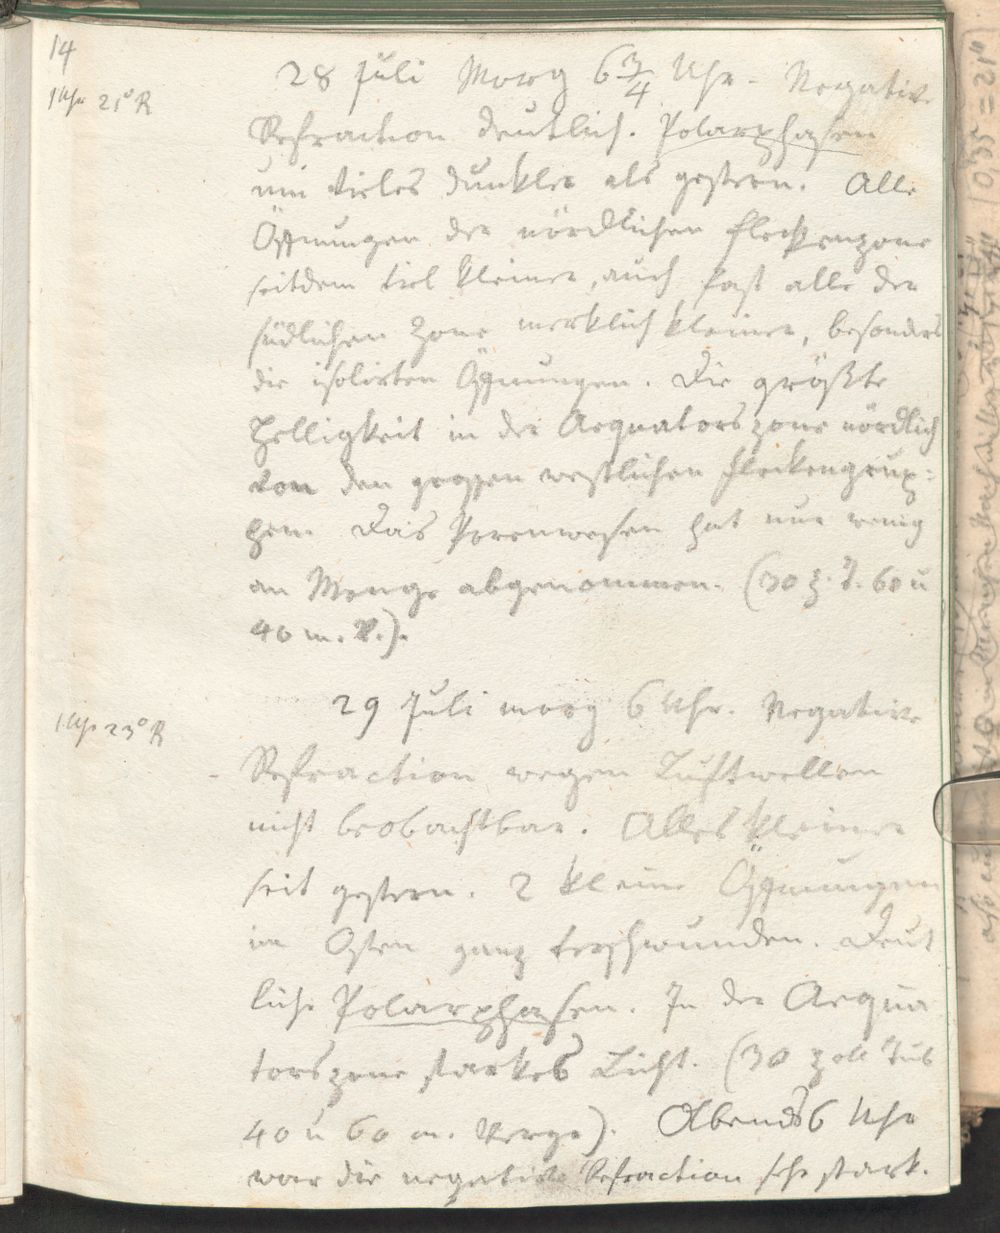 14
1 Uhr 21° R
28 Juli Morg 6 3/4 Uhr. Negative
Refraction deutlich. Polarphasen
um vieles dunkler als gestern. Alle
Öffnungen der nördlichen Fleckenzone
seitdem viel kleiner, auch fast alle der
südlichen Zone merklich kleiner, besonders
die isolirten Öffnungen. Die größte
Helligkeit in der Aequatorszone nördlich
von den grossen westlichen Fleckengrup-
pen. Das Porenwesen hat nur wenig
an Menge abgenommen. (30 z. T. 60 u
40 m. V.).
1 Uhr 23° R
29 Juli morg 6 Uhr. Negative
Refraction wegen Luftwellen
nicht beobachtbar. Alles kleiner
seit gestern. 2 kleine Öffnungen
im Osten ganz verschwunden. Deut
liche Polarphasen. In der Aequa
torszone starkes Licht. (30 zoll Tub
40 u 60 m. Vergr.). Abends 6 Uhr
war die negative Refraction sehr stark.